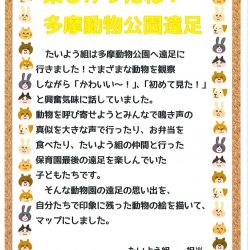 楽しかったね！
多摩動物公園遠足
たいよう組は多摩動物公園へ遠足に
行きました！さまざまな動物を観察
しながら「かわいい～！」、「初めて見た！」
と興奮気味に話していました。
動物を呼び寄せようとみんなで鳴き声の
真似を大きな声で行ったり、お弁当を
食べたり、たいよう組の仲間と行った
保育園最後の遠足を楽しんでいた
子どもたちです。
そんな動物園の遠足の思い出を、
自分たちで印象に残った動物の絵を描いて、
マップにしました。
たいよう組　担当